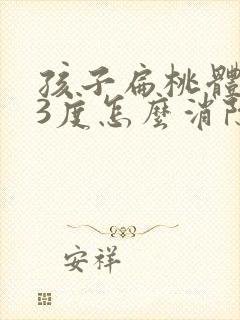 孩子扁桃體
3度怎麼消除
安祥